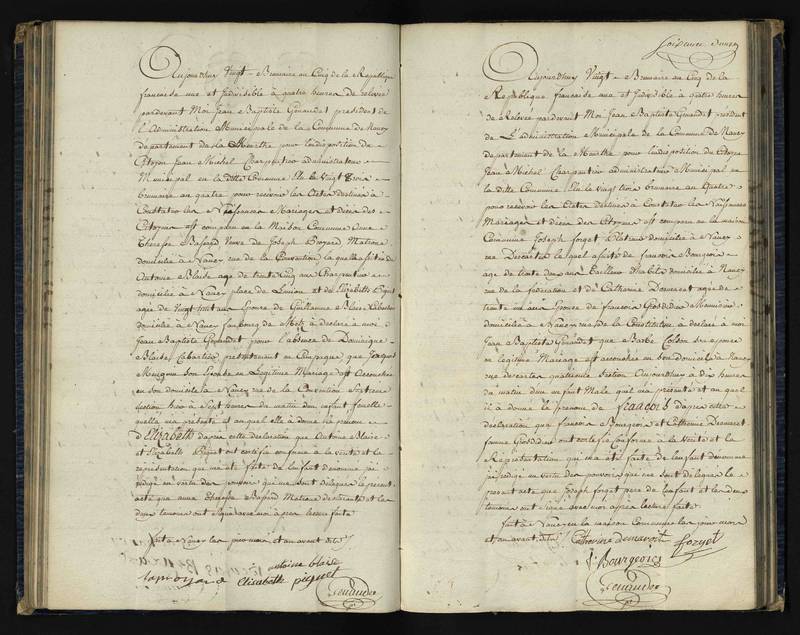 Aujourdhuy Vingt Brumaire au Cinq de la Republique
francaise une et Indivisible à quatre heures de relevée
pardevant Moi Jean Baptiste Genaudet president de
l'Administration Municipale de la Commune de Nancy
departement de la Meurthe pour l'indisposition du
Citoyen Jean Michel Charpentier administrateur
Municipal en la ditte Commune Elu le Vingt Trois
brumaire an quatre pour recevoir les Actes destinés à
Constater les Naissances Mariages et décès des
Citoyens est comparu en la Maison Commune Anne
Therese Veuve de Joseph Matrone
domiciliée à Nancy rue de la Convention laquelle assistée de
Antoine Blaise age de trente Cinq ans Charpentier
domicilié à Nancy place de et de Elizabeth Piquet
agée de Vingt ans Epouse de Guillaume Blaise
domiciliée à Nancy fauxbourg de Metz à declaré à moi
Jean Baptiste Genaudet pour l'absence de Dominique
Blaise presentement en Campagne que
son Epouse en Legitime Mariage est Accouchée
en son domicile à Nancy rue de la Convention Sixieme
Section hier à Sept heures du matin d'un enfant femelle
quelle ma présenté et auquel elle à donné le prenom
d'Elizabeth d'après cette declaration que Antoine Blaise
et Elizabeth Piquet ont certifié conforme à la Verité et la
représentation qui ma été faite de l'enfant denommé jai
rédigé en vertu des pouvoirs qui me sont délégués le present
acte que Anne Therese Matrone et les
deux temoins ont signé avec moi après lecture faite
fait à Nancy les jour mois et an avant dits
antoine blaise
elizabeth piquet
Genaudet
Aujourdhuy Vingt Brumaire au Cinq de la
Republique francaise une et Indivisible à quatre heures
de Relevée pardevant Moi Jean Baptiste Genaudet president
de L'administration Municipale de la Commune de Nancy
departement de la Meurthe pour l'indisposition du Citoyen
Jean Michel Charpentier administrateur Municipal en
la ditte Commune Elu le Vingt trois brumaire an Quatre
pour recevoir les Actes destinés à Constater les Naissances
Mariages et décès des Citoyens est comparu en la maison
Commune Joseph forget domicilié à Nancy
rue Descartes lequel assisté de francois Bourgeois
age de trente deux ans Tailleur d'habits domicilié à Nancy
rue de la federation et de Catherine agée de
trente ans Epouse de francois
domiciliée à Nancy rue de la Constitution à declaré à moi
Jean Baptiste Genaudet que Barbe Colson son epouse
en legitime Mariage est accouchée en son domicile à Nancy
rue descartes quatrieme Section Aujourdhuy à Dix heures
du matin d'un enfant Male quel ma présenté et auquel
il à donné le prenom de francois d'après cette
declaration que francois Bourgeois et Catherine
femme ont certifié conforme à la Verité et la
Représentation qui ma été faite de l'enfant denommé
jai redigé en vertu des pouvoirs qui me sont délégués le
present acte que Joseph forget pere de l'enfant et les deux
temoins ont Signé avec moi après lecture faite
fait à Nancy en la maison Commune les jour mois
et an avant dits
forget
f Bourgeois
Genaudet